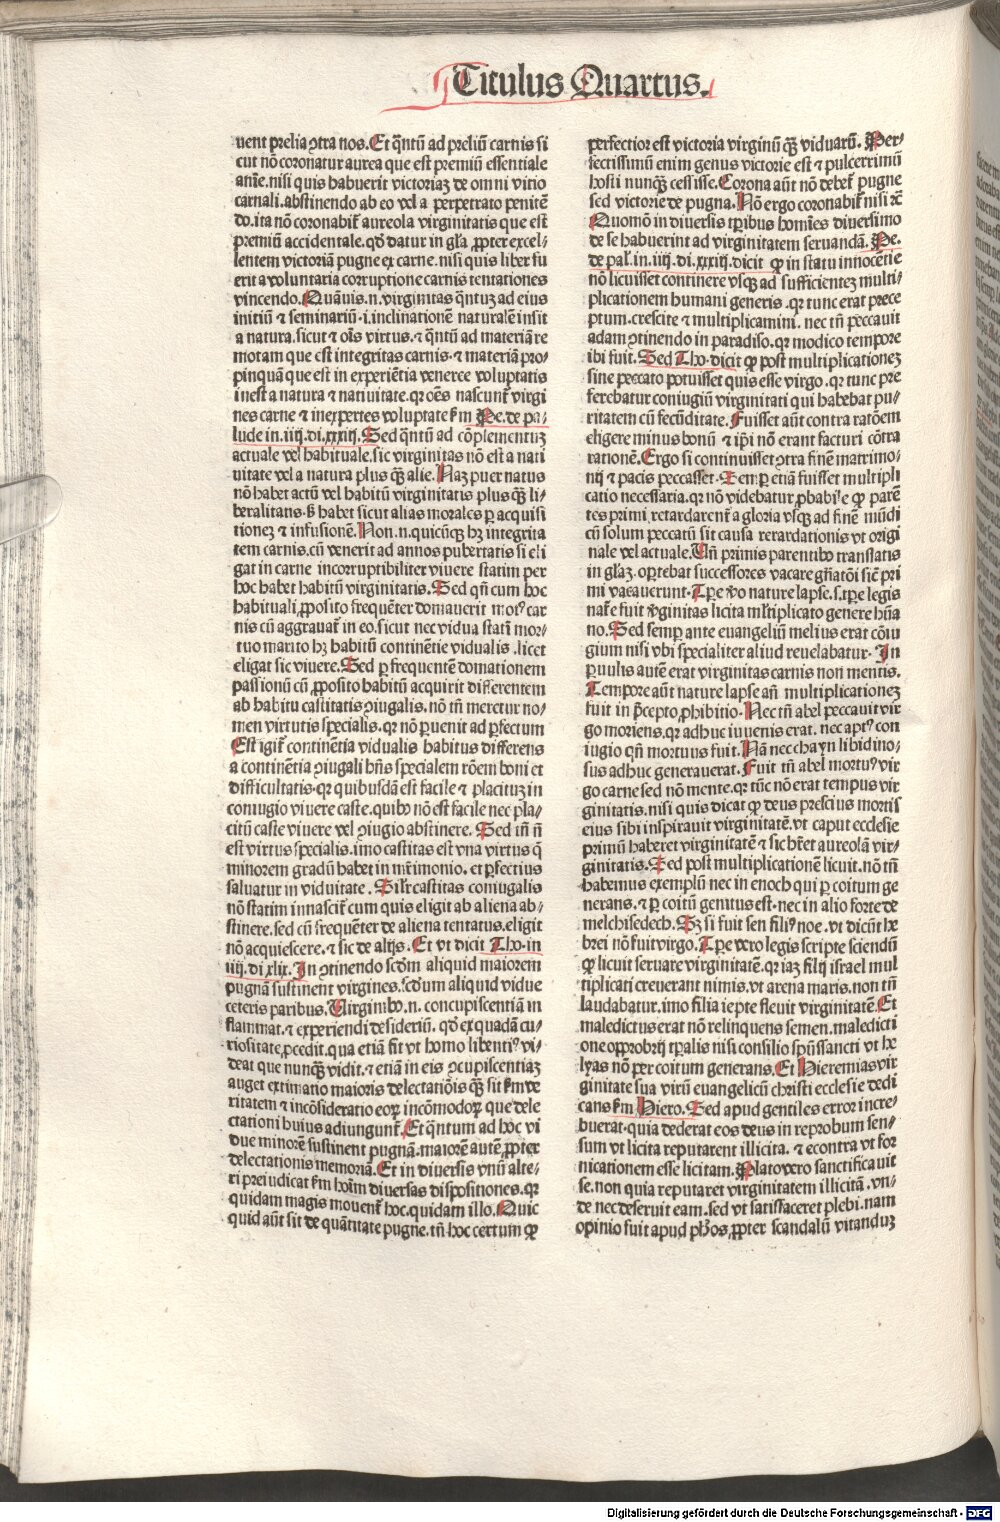 Titulus Quartus.
uent prelia ↄtra nos. Et q̄ntū ad preliū carnis si
cut nō coronatur aurea que est premiū essentiale
anīe. nisi quis habuerit victoriaȝ de omni vitio
carnali. abstinendo ab eo vel a perpetrato penitē
do. ita nō coronabit᷑ aureola virginitatis que est
premiū accidentale. qd̄ datur in gl̄a ꝓpter excel-
lentem victoriā pugne ex carne. nisi quis liber fu
erit a voluntaria corruptione carnis tentationes
vincendo. Quāuis .n. virginitas q̄ntuȝ ad eius
initiū ⁊ seminariū .i. inclinationē naturalē insit
a natura. sicut ⁊ oīs virtus. ⁊ q̄ntū ad materiā re
motam que est integritas carnis. ⁊ materiā pro-
pinquā que est in experiētia veneree voluptatis
inest a natura ⁊ natiuitate. qꝛ oēs nascunt᷑ virgi
nes carne ⁊ inexpertes voluptate ẜm Pe. de pa-
lude in .iiij. di. xxxiij. Sed q̄ntū ad cōplementuȝ
actuale vel habituale. sic virginitas nō est a nati
uitate vel a natura plus qȝ̄ alie. Naȝ puer natus
nō habet actū vel habitū virginitatis plus qȝ̄ li-
beralitatis. s̄ habet sicut alias morales ꝑ acquisi
tioneȝ ⁊ infusionē. Non .n. quicūqȝ hȝ integrita
tem carnis. cū venerit ad annos pubertatis si eli
gat in carne incorruptibiliter viuere statim per
hoc habet habitū virginitatis. Sed qn̄ cum hoc
habituali ꝓposito frequēter domauerit motꝰ car
nis cū aggrauat᷑ in eo. sicut nec vidua statī mor-
tuo marito hȝ habitū continētie vidualis. licet
eligat sic viuere. Sed ꝑ frequentē domationem
passionū cū ꝓposito habitū acquirit differentem
ab habitu castitatis ↄiugalis. nō tn̄ meretur no-
men virtutis specialis. qꝛ nō ꝑuenit ad ꝑfectum
Est igit᷑ continētia vidualis habitus differens
a continētia ↄiugali hn̄s specialem rōem boni et
difficultatis. qꝛ quibusdā est facile ⁊ placituȝ in
coniugio viuere caste. quibꝰ nō est facile nec pla-
citū caste viuere vel ↄiugio abstinere. Sed tn̄ n̄
est virtus specialis. imo castitas est vna virtus q̄
minorem gradū habet in mr̄imonio. et ꝑfectius
saluatur in viduitate. Silr̄ castitas coniugalis
nō statim innascit᷑ cum quis eligit ab aliena ab-
stinere. sed cū frequēter de aliena tentatus. eligit
nō acquiescere. ⁊ sic de alijs. Et vt dicit Tho. in
iiij. di. xlix. In ↄtinendo scd̄m aliquid maiorem
pugnā sustinent virgines. scd̄um aliquid vidue
ceteris paribus. Virginibꝰ .n. concupiscentiā in
flammat. ⁊ experiendi desideriū. qd̄ ex quadā cu-
riositate ꝓcedit. qua etiā fit vt homo libentiꝰ vi-
deat que nunqȝ̄ vidit. ⁊ etiā in eis ↄcupiscentiaȝ
auget extimatio maioris delectatiōis qȝ̄ sit ẜm ve
ritatem ⁊ incōsideratio eoꝝ incōmodoꝝ que dele
ctationi huius adiungunt᷑. Et q̄ntum ad hoc vi
due minorē sustinent pugnā. maiorē autē ꝓpter
delectationis memoriā. Et in diuersis vnū alte-
ri preiudicat ẜm hoīm diuersas dispositiones. qꝛ
quidam magis mouent᷑ hoc. quidam illo. Quic
quid aūt sit de quātitate pugne. tn̄ hoc certum ꝙ
perfectior est victoria virginū qȝ̄ viduarū. Per-
fectissimū enim genus victorie est ⁊ pulcerrimū
hosti nunqȝ̄ cessisse. Corona aūt nō debet᷑ pugne
sed victorie de pugna. Nō ergo coronabit᷑ nisi ⁊c̄
Quomō in diuersis tꝑibus homīes diuersimo
de se habuerint ad virginitatem seruandā. Pe.
de pal. in .iiij. di. xxxiij. dicit ꝙ in statu innocētie
nō licuisset continere vsqȝ ad sufficienteȝ multi-
plicationem humani generis. qꝛ tunc erat prece
ptum. crescite ⁊ multiplicamini. nec tn̄ peccauit
adam ↄtinendo in paradiso. qꝛ modico tempore
ibi fuit. Sed Tho. dicit ꝙ post multiplicationeȝ
sine peccato potuisset quis esse virgo. qꝛ tunc pre
ferebatur coniugiū virginitati qui habebat pu-
ritatem cū fecūditate. Fuisset aūt contra ratōem
eligere minus bonū ⁊ ip̄i nō erant facturi cōtra
rationē. Ergo si continuisset ↄtra finē matrimo-
nij ⁊ pacis peccasset. Semꝑ etiā fuisset multipli
catio necessaria. qꝛ nō videbatur ꝓbabile ꝙ parē
tes primi retardarent᷑ a gloria vsqȝ ad finē mūdi
cū solum peccatū sit causa retardationis vt origi
nale vel actuale. Tn̄ primis parentibꝰ translatis
in gl̄aȝ. oꝑtebat successores vacare gn̄atōi sic̄ pri
mi vacauerunt. Tꝑe v̄o nature lapse. s. tꝑe legis
nat᷑e fuit v̄ginitas licita ml̄tiplicato genere hūa
no. Sed semꝑ ante euangeliū melius erat cōiu
gium nisi vbi specialiter aliud reuelabatur. In
ꝑuulis autē erat virginitas carnis non mentis.
Tempore aūt nature lapse an̄ multiplicationeȝ
fuit in p̄cepto ꝓhibitio. Nec tn̄ abel peccauit vir
go moriens. qꝛ adhuc iuuenis erat. nec aptꝰ con
iugio qn̄ mortuus fuit. Nā nec chayn libidino-
sus adhuc generauerat. Fuit tn̄ abel mortuꝰ vir
go carne sed nō mente. qꝛ tūc nō erat tempus vir
ginitatis. nisi quis dicat ꝙ deus prescius mortis
eius sibi inspirauit virginitatē. vt caput ecclesie
primū haberet virginitatē ⁊ sic hr̄et aureolā vir-
ginitatis. Sed post multiplicationē licuit. nō tn̄
habemus exemplū nec in enoch qui ꝑ coitum ge
nerans. ⁊ ꝑ coitū genitus est. nec in alio forte de
melchisedech. Sȝ si fuit sen filiꝰ noe. vt dicūt he
brei nō fuit virgo. Tꝑe vero legis scripte sciendū
ꝙ licuit seruare virginitatē. qꝛ iaȝ filij israel mul
tiplicati creuerant nimis. vt arena maris. non tn̄
laudabatur. imo filia iepte fleuit virginitatē. Et
maledictus erat nō relinquens semen. maledicti
one opprobrij tꝑalis nisi consilio spūssancti vt he
lyas nō per coitum generans. Et Hieremias vir
ginitate sua virū euangelicū christi ecclesie dedi
cans ẜm Hiero. Sed apud gentiles error incre-
buerat. quia dederat eos deus in reprobum sen-
sum vt licita reputarent illicita. ⁊ econtra vt for
nicationem esse licitam. Plato vero sanctificauit
se. non quia reputaret virginitatem illicitā. vn-
de nec deseruit eam. sed vt satisfaceret plebi. nam
opinio fuit apud ph̄os. ꝓpter scandalū vitanduȝ
Digitalisierung gefördert durch die Deutsche Forschungsgemeinschaft - DFG